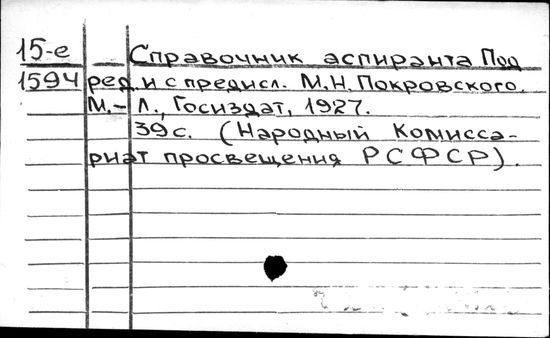 15-е Справочник аспиранта Под
1594 ред. и с предисл. М.Н. Покровского.
М.-Л., Госиздат, 1927.
39 с. (Народный Комисса-
риат просвещения РСФСР).